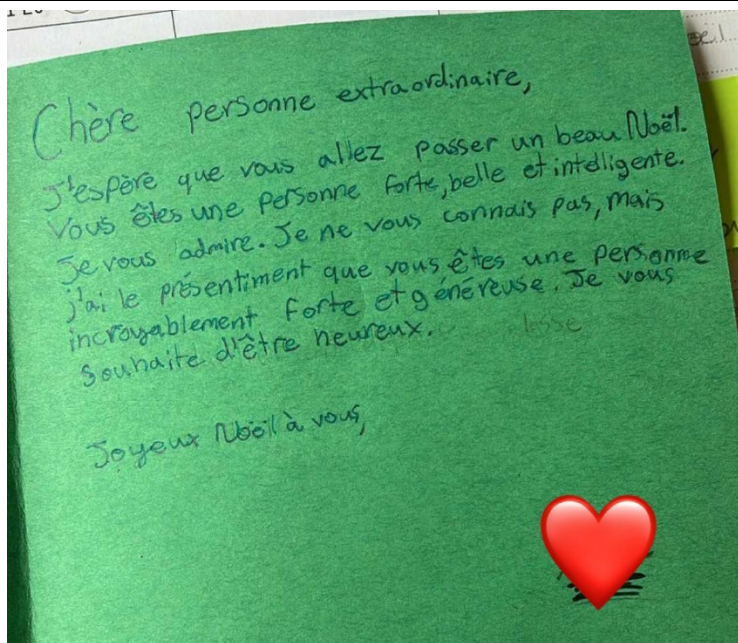 Chère personne extraordinaire,
J'espère que vous allez passer un beau Noël.
Vous êtes une personne forte, belle et intelligente.
Je vous admire. Je ne vous connais pas, mais
j'ai le présentiment que vous êtes une personne
incroyablement forte et généreuse. Je vous
souhaite d'être heureux.
Joyeux Noël à vous,